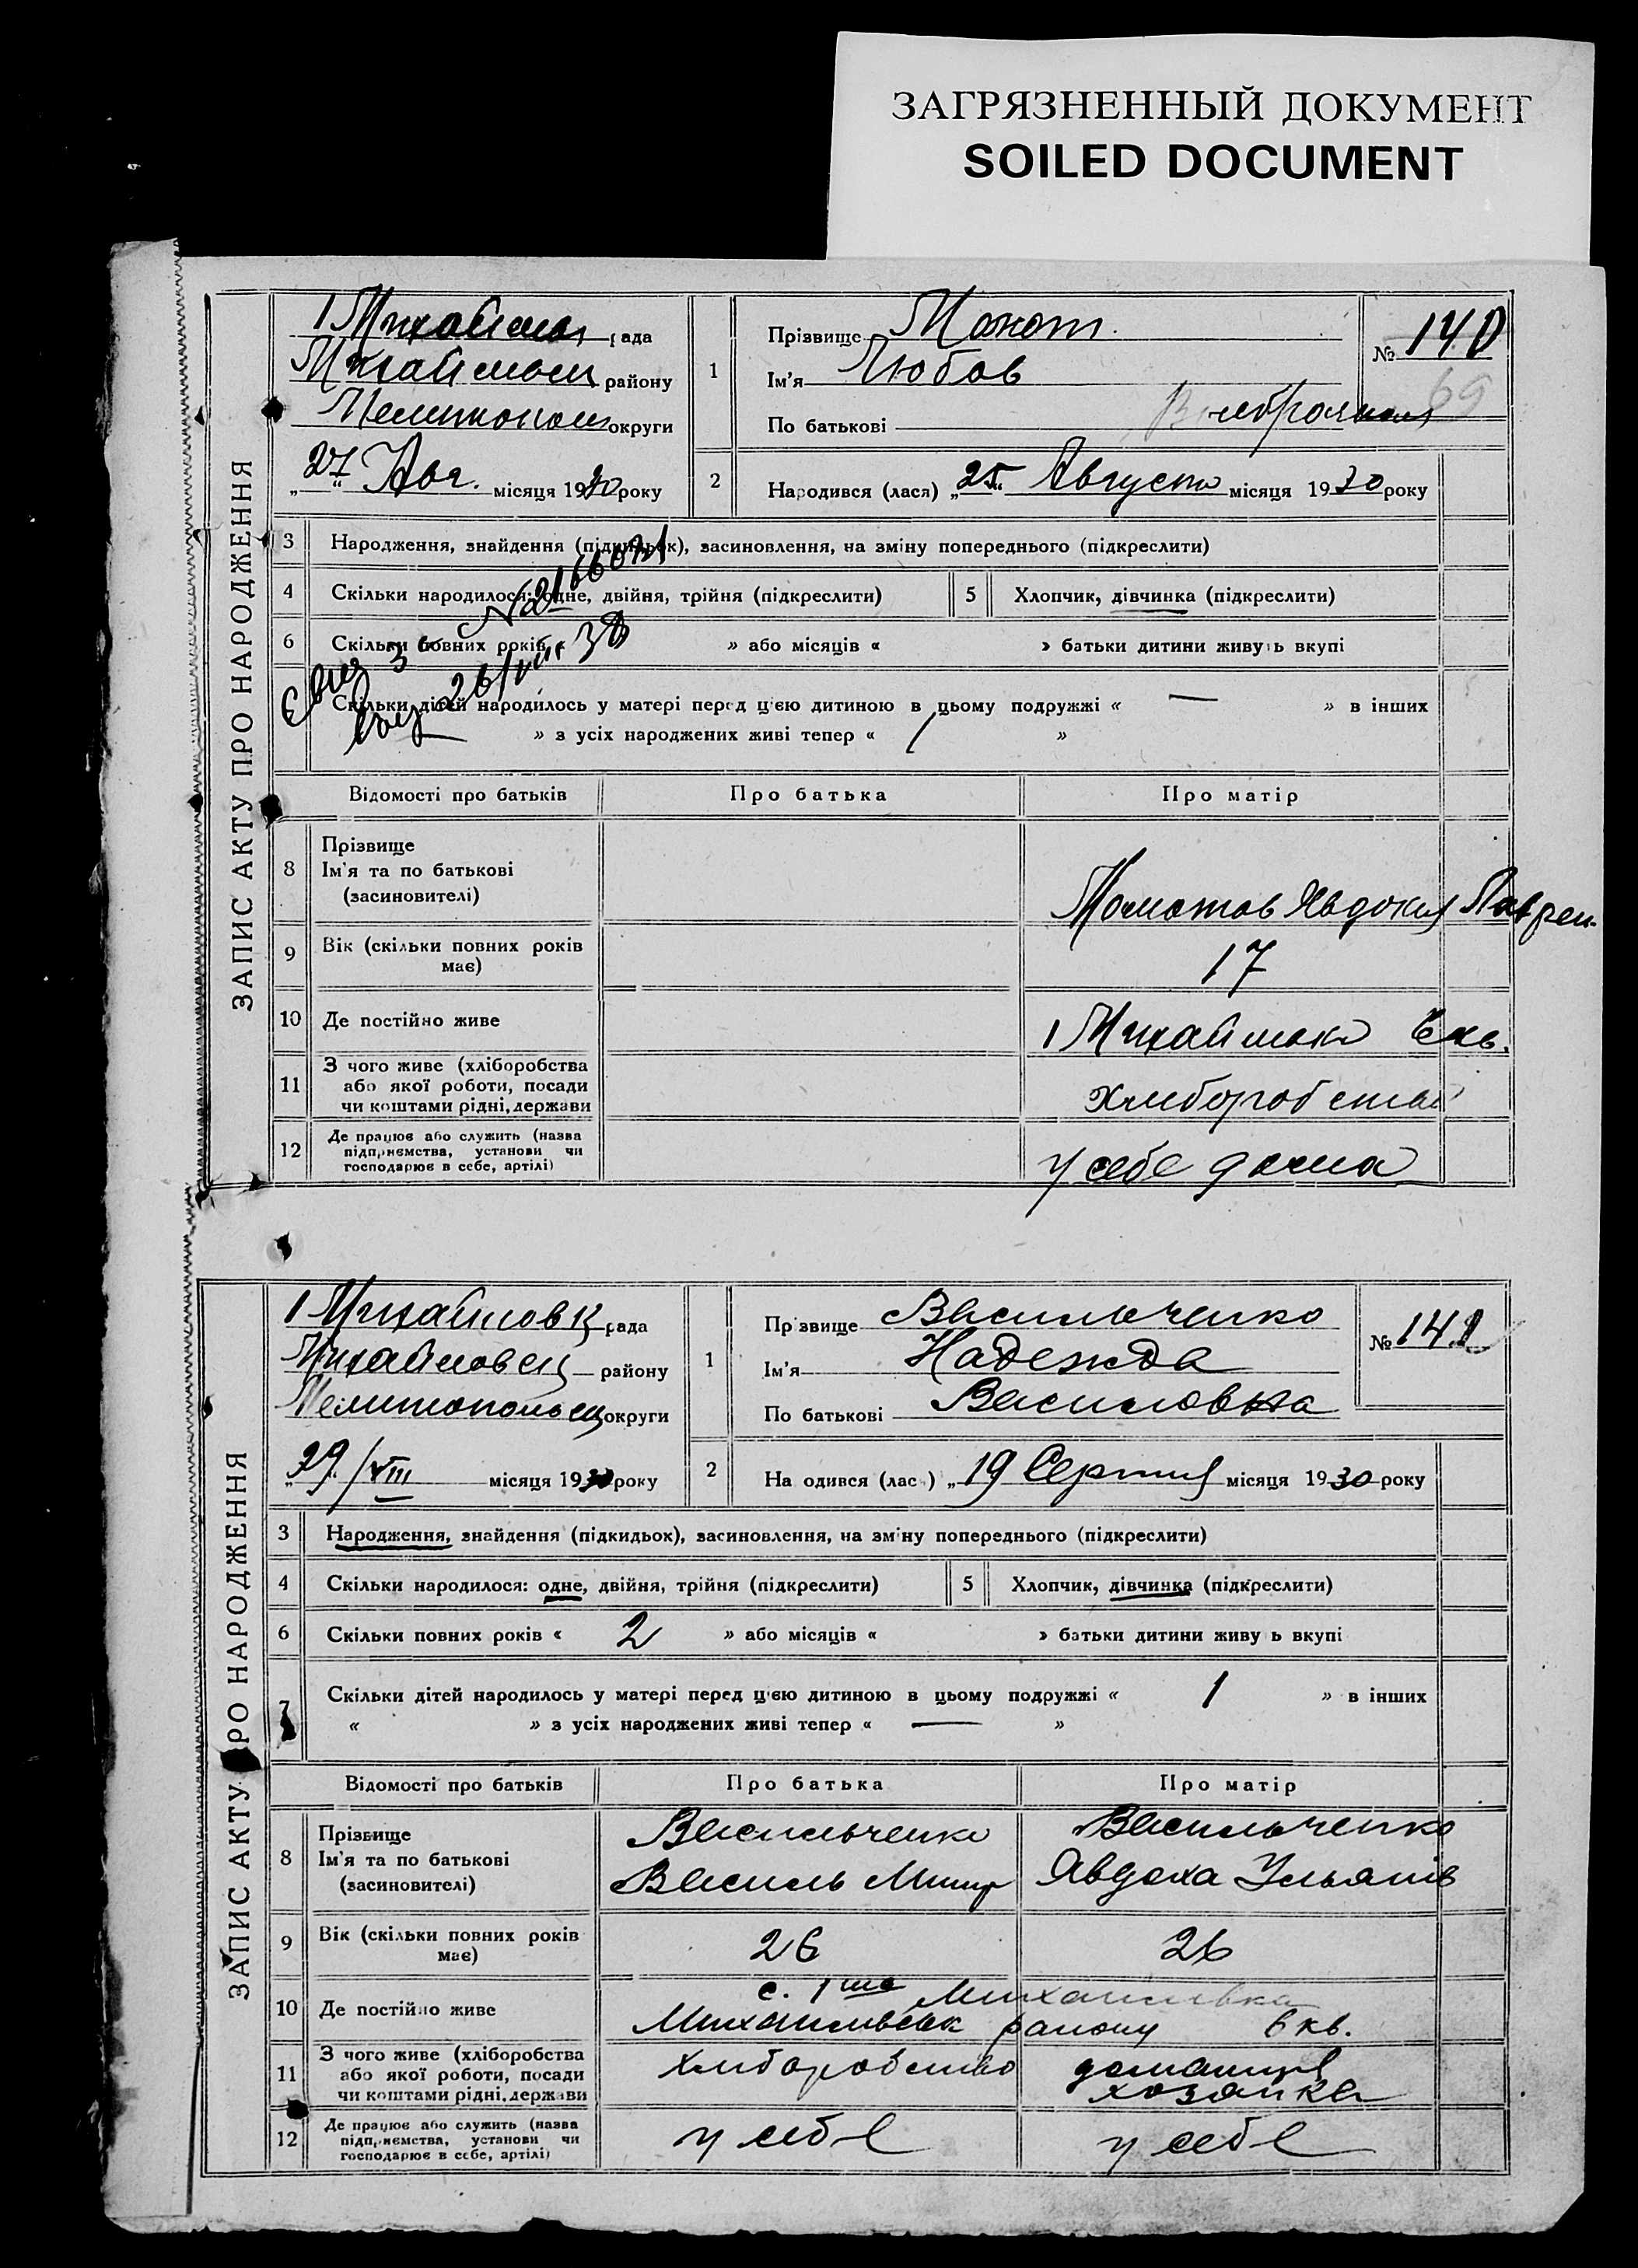 ЗАГРЯЗНЕННЫЙ ДОКУМЕНТ
SOILED DOCUMENT
ЗАПИС АКТУ ПРО НАРОДЖЕННЯ
рада
району
округи
„27“ Авг. місяця 1930 року
1
Прізвище
Ім'я Любов
По батькові
№ 140
69
2
Народився (лася) „25“ Августа місяця 1930 року
3 Народження, знайдення (підкидьок), засиновлення, на зміну попереднього (підкреслити)
4 Скільки народилося: одне, двійня, трійня (підкреслити)
5 Хлопчик, дівчинка (підкреслити)
6 Скільки повних років « » або місяців « » батьки дитини живуть вкупі
26/VIII 38
Скільки дітей народилось у матері перед цією дитиною в цьому подружжі « — » в інших
» з усіх народжених живі тепер « »
Відомості про батьків Про батька Про матір
8 Прізвище
Ім'я та по батькові
(засиновителі)
Явдокия Лаврен.
9 Вік (скільки повних років
має)
17
10 Де постійно живе
1 Михайловка 6 кв.
11 З чого живе (хліборобства
або якої роботи, посади
чи коштами рідні, держави
12 Де працює або служить (назва
підприємства, установи чи
господарює в себе, артілі)
у себе дома
ЗАПИС АКТУ ПРО НАРОДЖЕННЯ
1 Михайловц рада
Михайловец району
Мелитопольец округи
„29“ /VIII місяця 1930 року
1
Прізвище Васильченко
Ім'я Надежда
По батькові Василовна
№ 141
2
Народився (лася) „19 Серпня місяця 1930 року
3 Народження, знайдення (підкидьох), засиновлення, на зміну попереднього (підкреслити)
4 Скільки народилося: одне, двійня, трійня (підкреслити)
5 Хлопчик, дівчинка (підкреслити)
6 Скільки повних років « 2 » або місяців « » батьки дитини живуть вкупі
7 Скільки дітей народилось у матері перед цією дитиною в цьому подружжі « 1 » в інших
« » з усіх народжених живі тепер « — »
Відомості про батьків Про батька Про матір
8 Прізвище
Ім'я та по батькові
(засиновителі)
Васильченко
Василь
Васильченко
Явдоха Ульянів
9 Вік (скільки повних років
має)
26
26
10 Де постійно живе
с. 1ша Михайлівка
Михайлівськ району 6 кв.
11 З чого живе (хліборобства
або якої роботи, посади
чи коштами рідні, держави
Хліборобство
домашня
хозяйка
12 Де працює або служить (назва
підприємства, установи чи
господарює в себе, артілі)
у себе
у себе